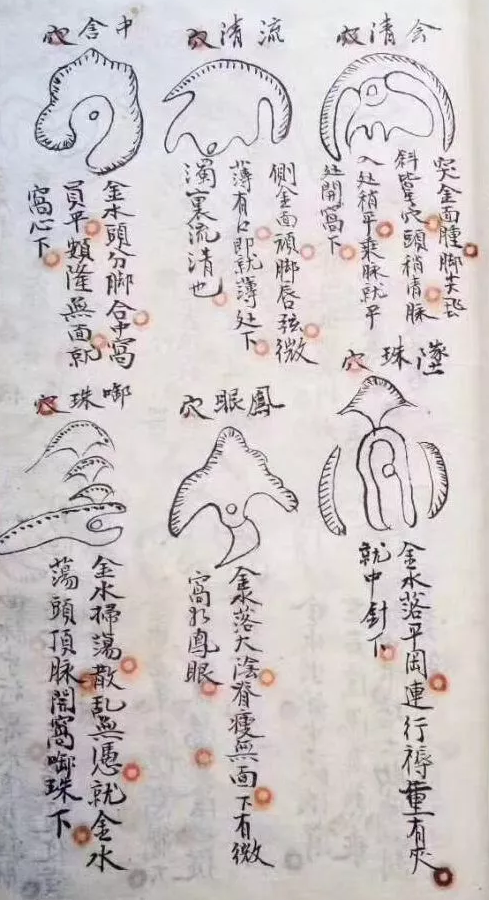 会清穴
突金面腫脚尖
斜穴頭稍清脉
入处稍平乘脉就平
处開窩下
流清穴
側金面頑脚唇弦微
薄有口即就薄处下
濁裏流清也
中含穴
金水頭分脚合中窩
員平頰隆無面就
窩心下
墜珠穴
金水落平岡連行褥重有夾
就中針下
鳳眼穴
金水落大隂脊瘦無面下有微
窩形鳳眼
啣珠穴
金水掃蕩散乱無憑就金水
蕩頭頂脉開窩啣珠下